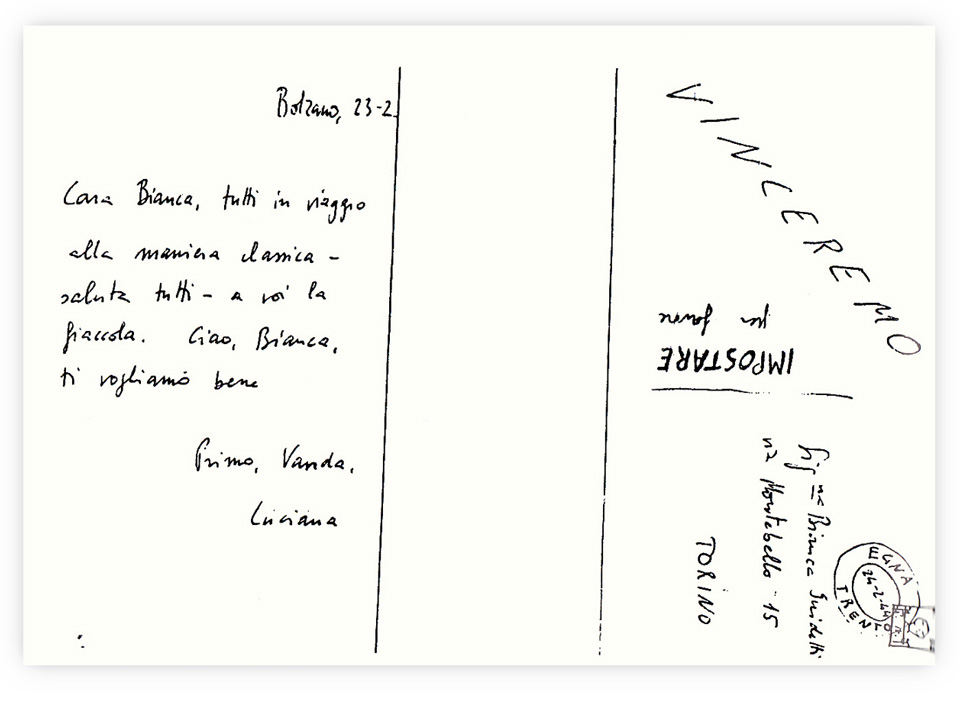 Bolzano, 23-2.
Cara Bianca, tutti in viaggio
alla maniera classica -
saluta tutti - a voi la
fiaccola. Ciao, Bianca,
ti vogliamo bene
Primo, Vanda,
Luciana
VINCEREMO
per favore
IMPOSTARE
Sig.na Bianca Guidetti
via Montebello 15
TORINO
EGNA
24-2-44
TRENTO